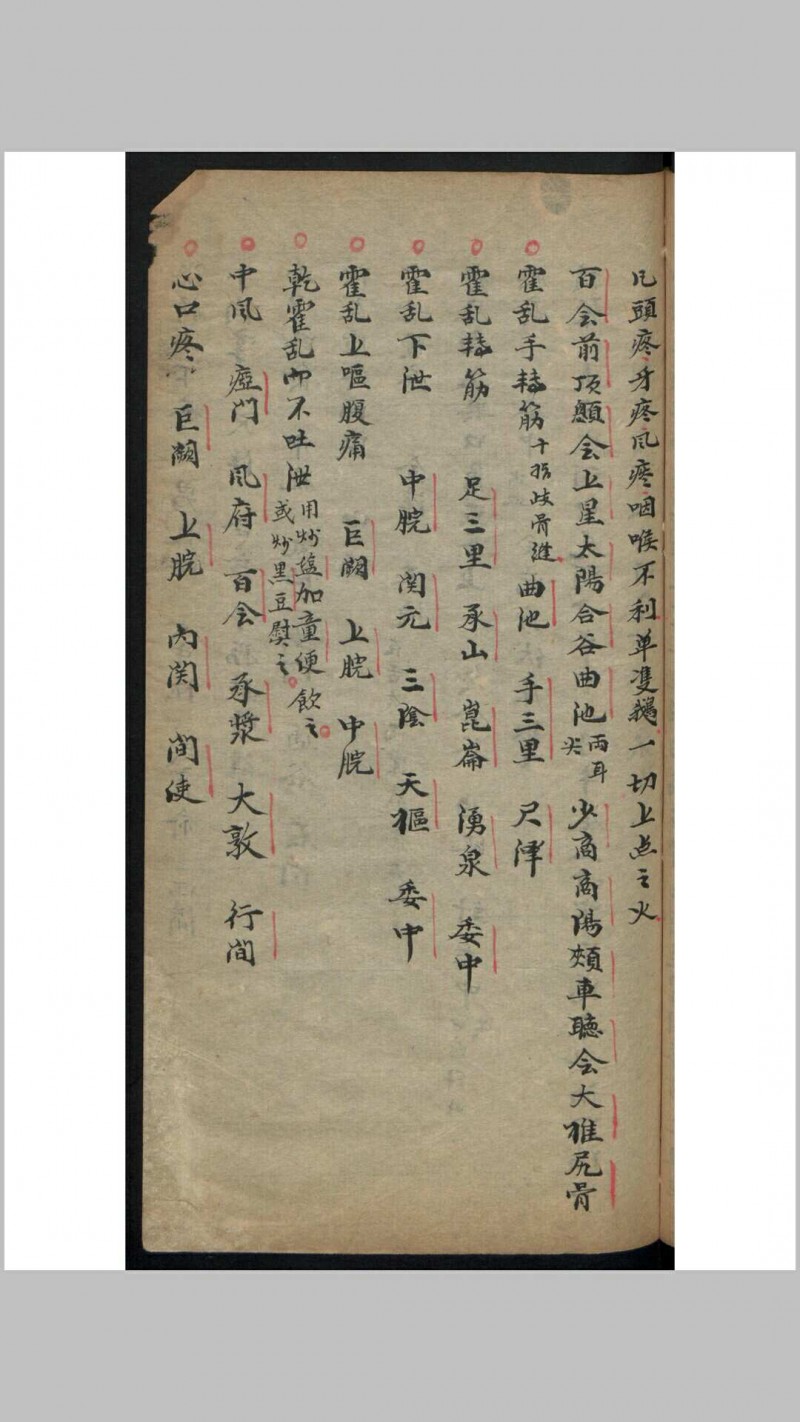 凡頭疼牙疼风疼咽喉不利单隻鵝一切上点之火
百会前顶顖会上星太陽合谷曲池两耳尖少商商陽頰車聴会大椎尻骨
霍乱手转筋十指歧骨缝曲池手三里尺泽
霍乱转筋足三里承山崑崙湧泉委中
霍乱下泄中脘関元三陰天枢委中
霍乱上嘔腹痛巨闕上脘中脘
乾霍乱而不吐泄用炒盐加童便飲之或炒黑豆熨之
中风瘂門风府百会承漿大敦行间
心口疼巨闕上脘内関间使